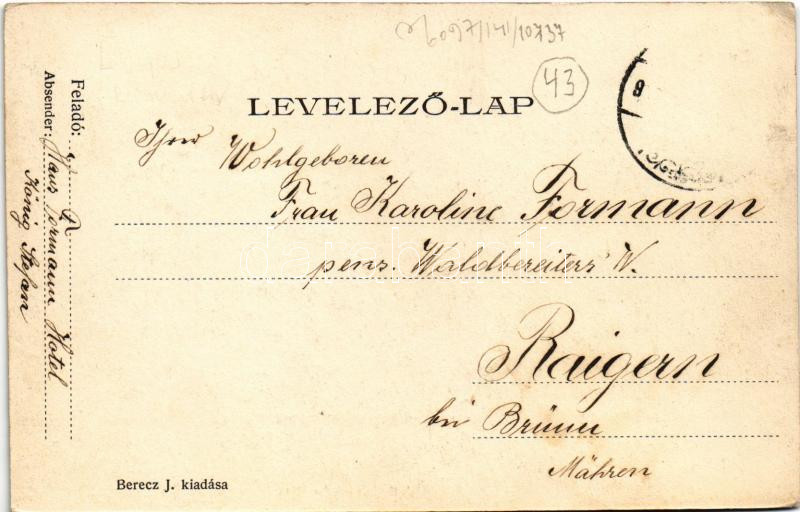 6097/141/10737
43
LEVELEZŐ-LAP
9
Ihrer Wohlgeboren
Frau Karoline Formann
pens. Waldbereiters W.
Raigern
bei Brünn
Mähren
Feladó:
Absender: Hans Formann Hotel
König Stefan
Berecz J. kiadása